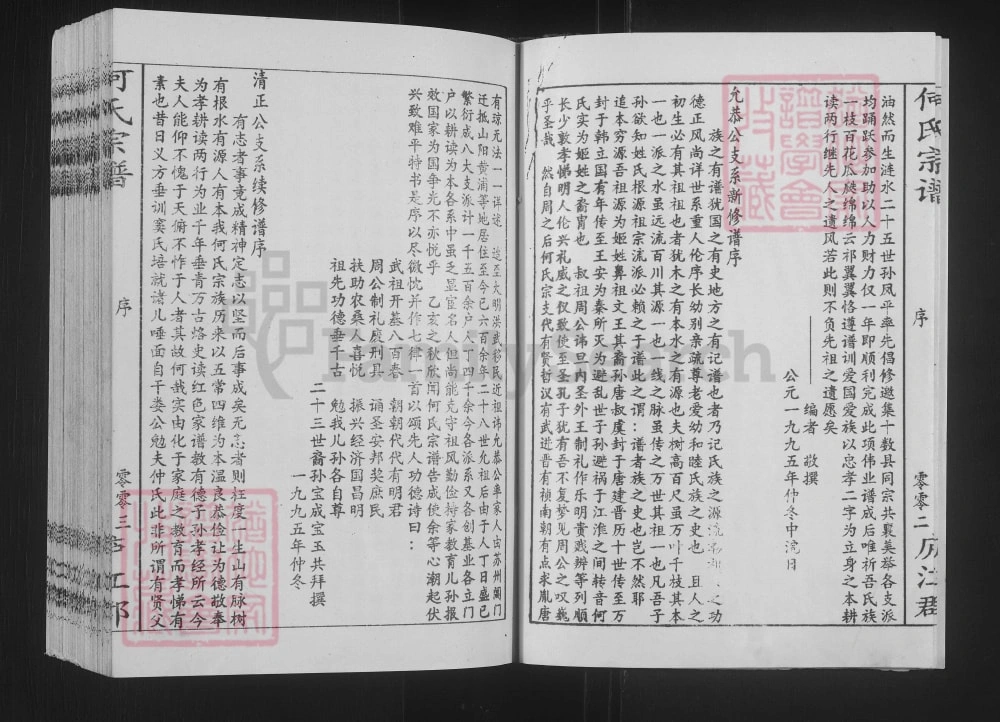 何氏宗谱
序
零零二
庐江郡
油然而生涟水二十五世孙凤平率先倡修邀集十数县同宗共襄美举各支派
均踊跃参加助以人力财力仅一年即顺利完成此项伟业谱成后唯祈吾氏族
一枝百花瓜瓞绵绵云祁翼翼恪遵谱训爱国爱族以忠孝二字为立身之本耕
读两行继先人之遗风若此则不负先祖之遗愿矣
编者 敬撰
公元一九九五年仲冬中浣日
允恭公支系新修谱序
族之有谱犹国之有史地方之有记谱也者乃记氏族之源流 之功
德正风尚详世系重人伦序长幼别亲疏尊老爱幼和睦氏族之史也 且人之
初生必有其祖也者犹木之有本水之有源也夫树高百尺虽万叶千枝其本
一也一派之水虽远流百川其源一也一线之脉虽传之万世其祖一也凡吾子
孙欲知姓氏根源祖宗流派必赖之于谱此之谓谱者族之史也岂不然耶
追本穷源吾祖源为姬姓鼻祖文王其裔孙唐叔虞封于唐建晋历十世传至万
封于韩立国有年传至王安为秦所灭为避乱世子孙避祸于江淮之间转音何
氏实为姬姓之裔胄也 叔祖周公讳旦内圣外王制礼作乐明贵贱辨等列顺
长少敦孝悌明人伦兴礼威之仪致使至圣孔子犹有吾不复梦见周公之叹巍
乎圣哉 然自周之后何氏宗支代有贤哲汉有武进晋有祯南朝有点求胤唐
有琼元无法一一详述 迨至大明洪武移民近祖讳允恭公率家人由苏州阊门
迁抵山阳黄浦等地居住至今已六百余年二十八世允祖后由于人丁日盛已
繁衍成八大支派计一千五百余户人丁四千余今各派系又各创基业各立门
户以耕读为本各系中虽乏显宦名人但尚能克守祖风勤俭持家教育儿孙报
效国家为国争光不亦悦乎 乙亥之秋欣闻何氏宗谱告成使余等心潮起伏
兴致难平特书是序以尽微忱并作七律一首以颂先人功德诗曰：
武祖开基八百春 朝朝代代有明君
周公制礼庋刑具 诵圣安邦奖庶民
扶助农桑人喜悦 振兴经济国昌明
祖先功德垂千古 勉我儿孙各自尊
二十三世裔孙宝成宝玉共拜撰
一九九五年仲冬
清正公支系续修谱序
有志者事竟成精神定志以坚而后事成矣无志者则枉度一生山有脉树
有根水有源人有本我何氏宗族历来以五常四维为本温良恭俭让为德故奉
为孝耕读两行为业千年垂青万古烙史读红色家谱教有德子孙孝经所云今
夫人能仰不愧于天俯不怍于人者其故何哉实由化于家庭之教育而孝悌有
素也昔日义方垂训窦氏培就诸儿唾面自干娄公勉夫仲氏此非所谓有贤父
何氏宗谱
序
零零三
庐江郡